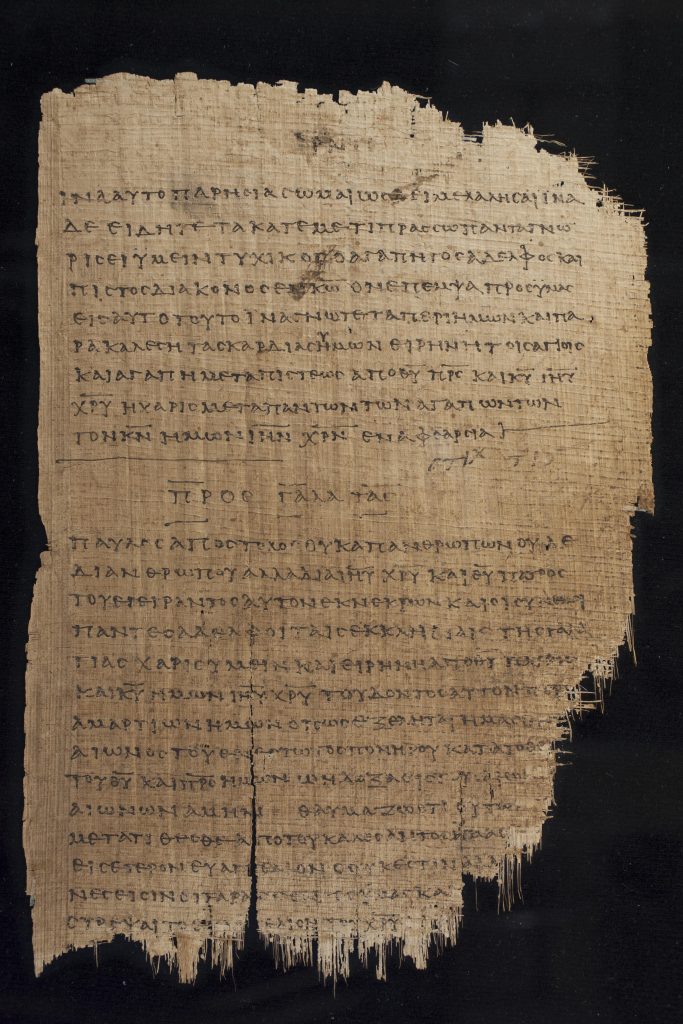 ΙΝΑΑΥΤΟΠΑΡΗϹΙΑϹΩΜΑΙΩϹΔΕΙΜΕΛΑΛΗϹΑΙΙΝΑ
ΔΕΕΙΔΗΤΕΤΑΚΑΤΕΜΕΤΙΠΡΑϹϹΩΠΑΝΤΑΓΝΩ
ΡΙϹΕΙΥΜΕΙΝΤΥΧΙΚΟϹΟΑΓΑΠΗΤΟϹΑΔΕΛΦΟϹΚΑΙ
ΠΙϹΤΟϹΔΙΑΚΟΝΟϹΕΝΚ̅Ω̅ ΟΝΕΠΕΜΨΑΠΡΟϹΥΜΑϹ
ΕΙϹΑΥΤΟΤΟΥΤΟΙΝΑΓΝΩΤΕΤΑΠΕΡΙΗΜΩΝΚΑΙΠΑ
ΡΑΚΑΛΕϹΗΤΑϹΚΑΡΔΙΑϹΥΜΩΝ ΕΙΡΗΝΗΤΟΙϹΑΓΙΟΙϹ
ΚΑΙΑΓΑΠΗΜΕΤΑΠΙϹΤΕΩϹΑΠΟΘ̅Υ̅ Π̅Ρ̅Ϲ̅ ΚΑΙΚ̅Υ̅ Ι̅Η̅Υ̅
Χ̅Ρ̅Υ̅ ΗΧΑΡΙϹΜΕΤΑΠΑΝΤΩΝΤΩΝΑΓΑΠΩΝΤΩΝ
ΤΟΝΚ̅Ν̅ ΗΜΩΝΙ̅Η̅Ν̅ Χ̅Ρ̅Ν̅ ΕΝΑΦΘΑΡϹΙΑ
ΠΡΟϹ ΓΑΛΑΤΑϹ
ΠΑΥΛΟϹΑΠΟϹΤΟΛΟϹΟΥΚΑΠΑΝΘΡΩΠΩΝΟΥΔΕ
ΔΙΑΝΘΡΩΠΟΥΑΛΛΑΔΙΑΙ̅Η̅Υ̅ Χ̅Ρ̅Υ̅ ΚΑΙΘ̅Υ̅ΠΑΤΡΟϹ
ΤΟΥΕΓΕΙΡΑΝΤΟϹΑΥΤΟΝΕΚΝΕΚΡΩΝΚΑΙΟΙϹΥΝΕΜΟΙ
ΠΑΝΤΕϹΑΔΕΛΦΟΙΤΑΙϹΕΚΚΛΗϹΙΑΙϹΤΗϹΓΑΛΑ
ΤΙΑϹΧΑΡΙϹΥΜΕΙΝΚΑΙΕΙΡΗΝΗΑΠΟΘ̅Υ̅
ΚΑΙΚ̅Υ̅ΗΜΩΝΙ̅Η̅Υ̅Χ̅Ρ̅Υ̅ΤΟΥΔΟΝΤΟϹΑΥΤΟΝΠΕΡΙ
ΑΜΑΡΤΙΩΝΗΜΩΝΟΠΩϹΕΞΕΛΗΤΑΙΗΜΑϹ
ΑΙΩΝΟϹΤΟΥΕΝΕϹΤΩΤΟϹΠΟΝΗΡΟΥΚΑΤΑΤΟΘΕ
ΤΟΥΘ̅Υ̅ΚΑΙΠ̅Ρ̅Ϲ̅ΗΜΩΝΩΗΔΟΞΑΕΙϹ
ΑΙΩΝΩΝΑΜΗΝ ΘΑΥΜΑΖΩΟΤΙΟΥΤΩ
ΜΕΤΑΤΙΘΕϹΘΕΑΠΟΤΟΥΚΑΛΕϹΑΝΤΟϹΥΜΑϹ
ΕΙϹΕΤΕΡΟΝΕΥΑΓΓΕΛΙΟΝΟΟΥΚΕϹΤΙΝΑΛΛ
ΝΕϹΕΙϹΙΝΟΙΤΑΡΑ ΥΜΑϹΚΑ
ΕΛΙΟΝΤΟΥΧ̅Ρ̅Υ̅